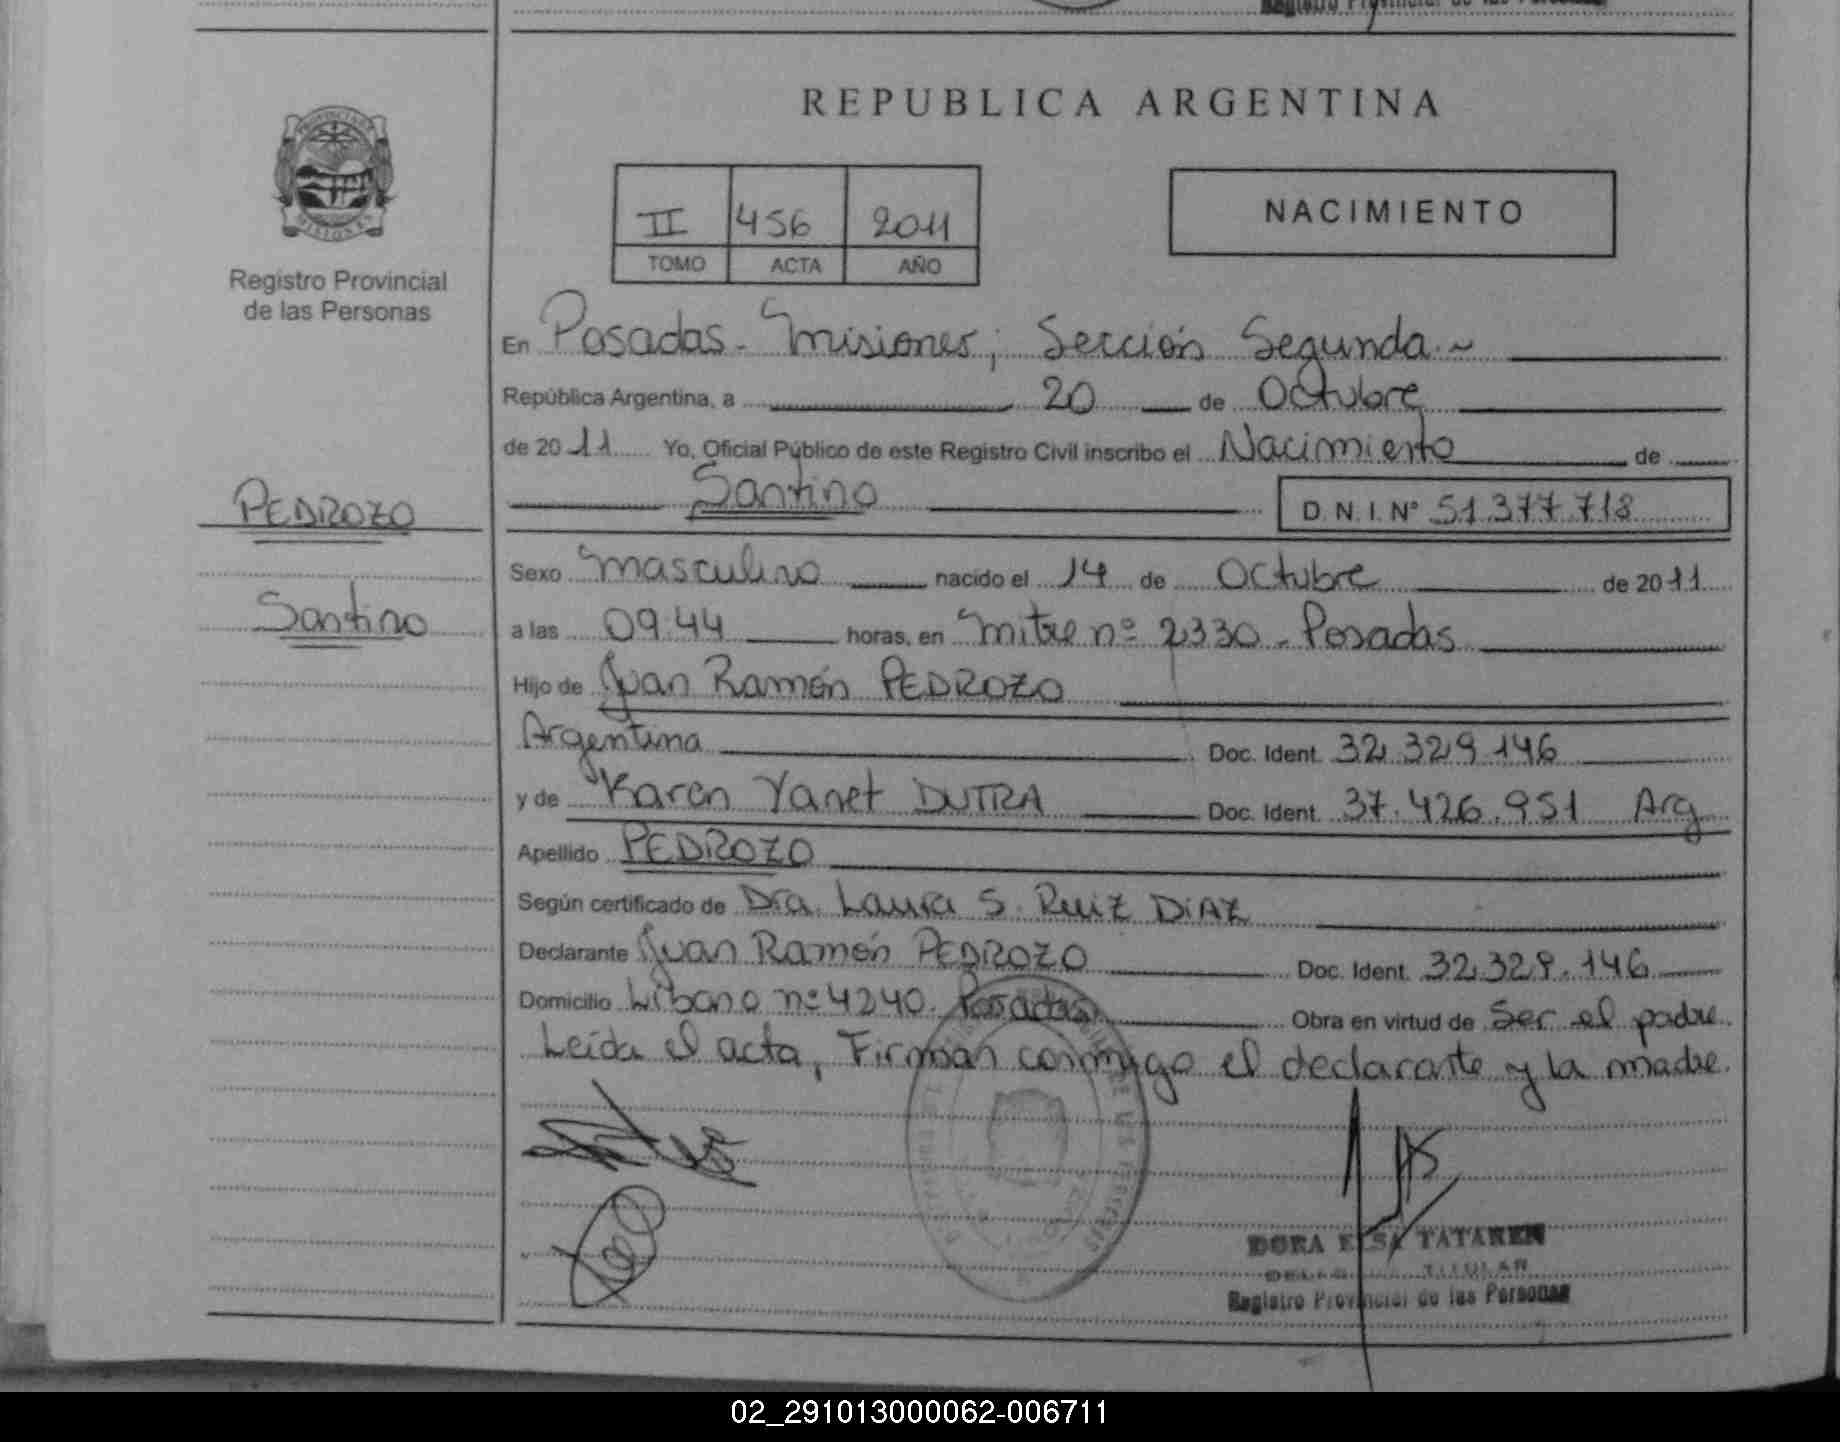 Registro Provincial de las Personas
REPUBLICA ARGENTINA
PROVINCIA DE
MISIONES
Registro Provincial
de las Personas
II 456 2011
TOMO ACTA AÑO
NACIMIENTO
En Posadas - Misiones; Sección Segunda.~
República Argentina, a 20 de Octubre
de 2011 Yo, Oficial Público de este Registro Civil inscribo el Nacimiento de
Santino D.N.I.Nº 51.377.718
PEDROZO
Santino
Sexo Masculino nacido el 14 de Octubre de 2011
a las 09:44 horas, en Mitre nº 2330 - Posadas
Hijo de Juan Ramón PEDROZO
Argentina Doc. Ident. 32.329.146
y de Karen Yanet DUTRA Doc. Ident. 37.426.951 Arg
Apellido PEDROZO
Según certificado de Dra. Laura S. Ruiz DiAZ
Declarante Juan Ramón PEDROZO Doc. Ident. 32.329.146
Domicilio Libano nº 4240. Posadas Obra en virtud de Ser el padre.
Leída el acta, Firman conmigo el declarante y la madre.
DORA ELSA TATAREN
TITULAR
Registro Provincial de las Personas
02_291013000062-006711